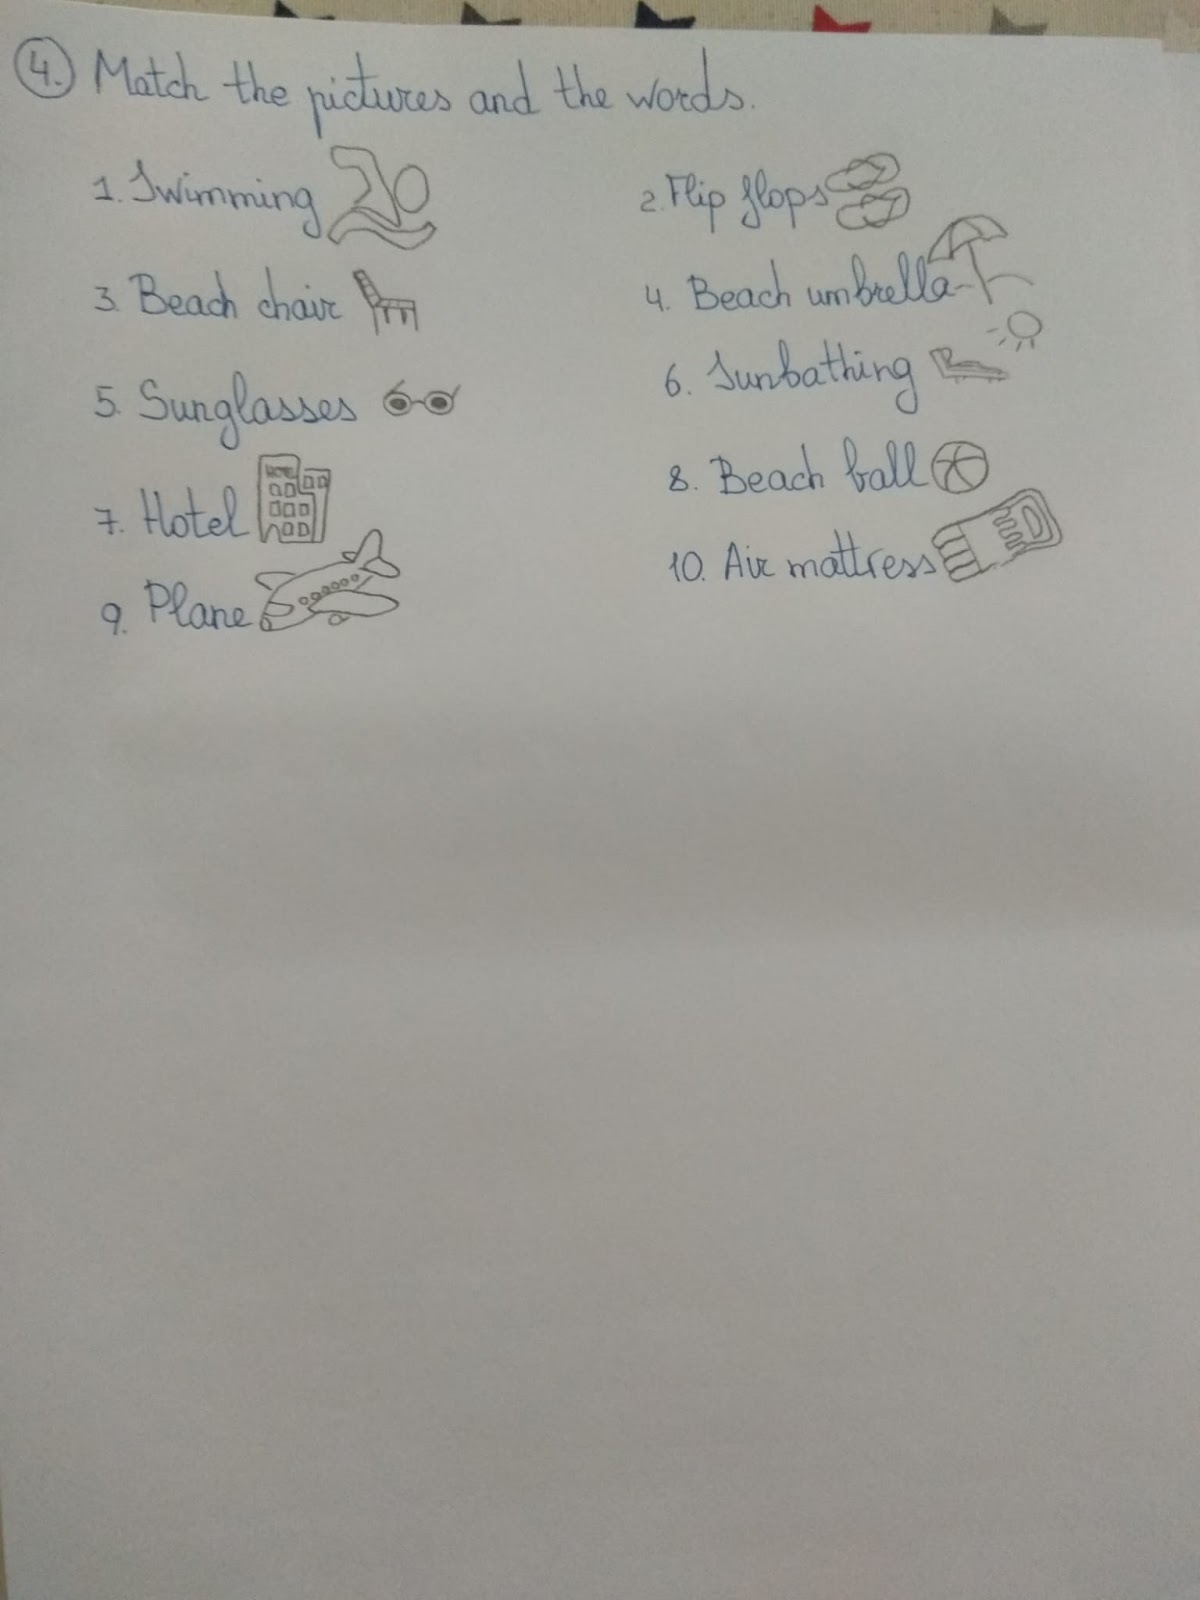 4. Match the pictures and the words.
1. Swimming
2. Flip flops
3. Beach chair
4. Beach umbrella
5. Sunglasses
6. Sunbathing
7. Hotel
HOTEL
8. Beach ball
9. Plane
10. Air mattress